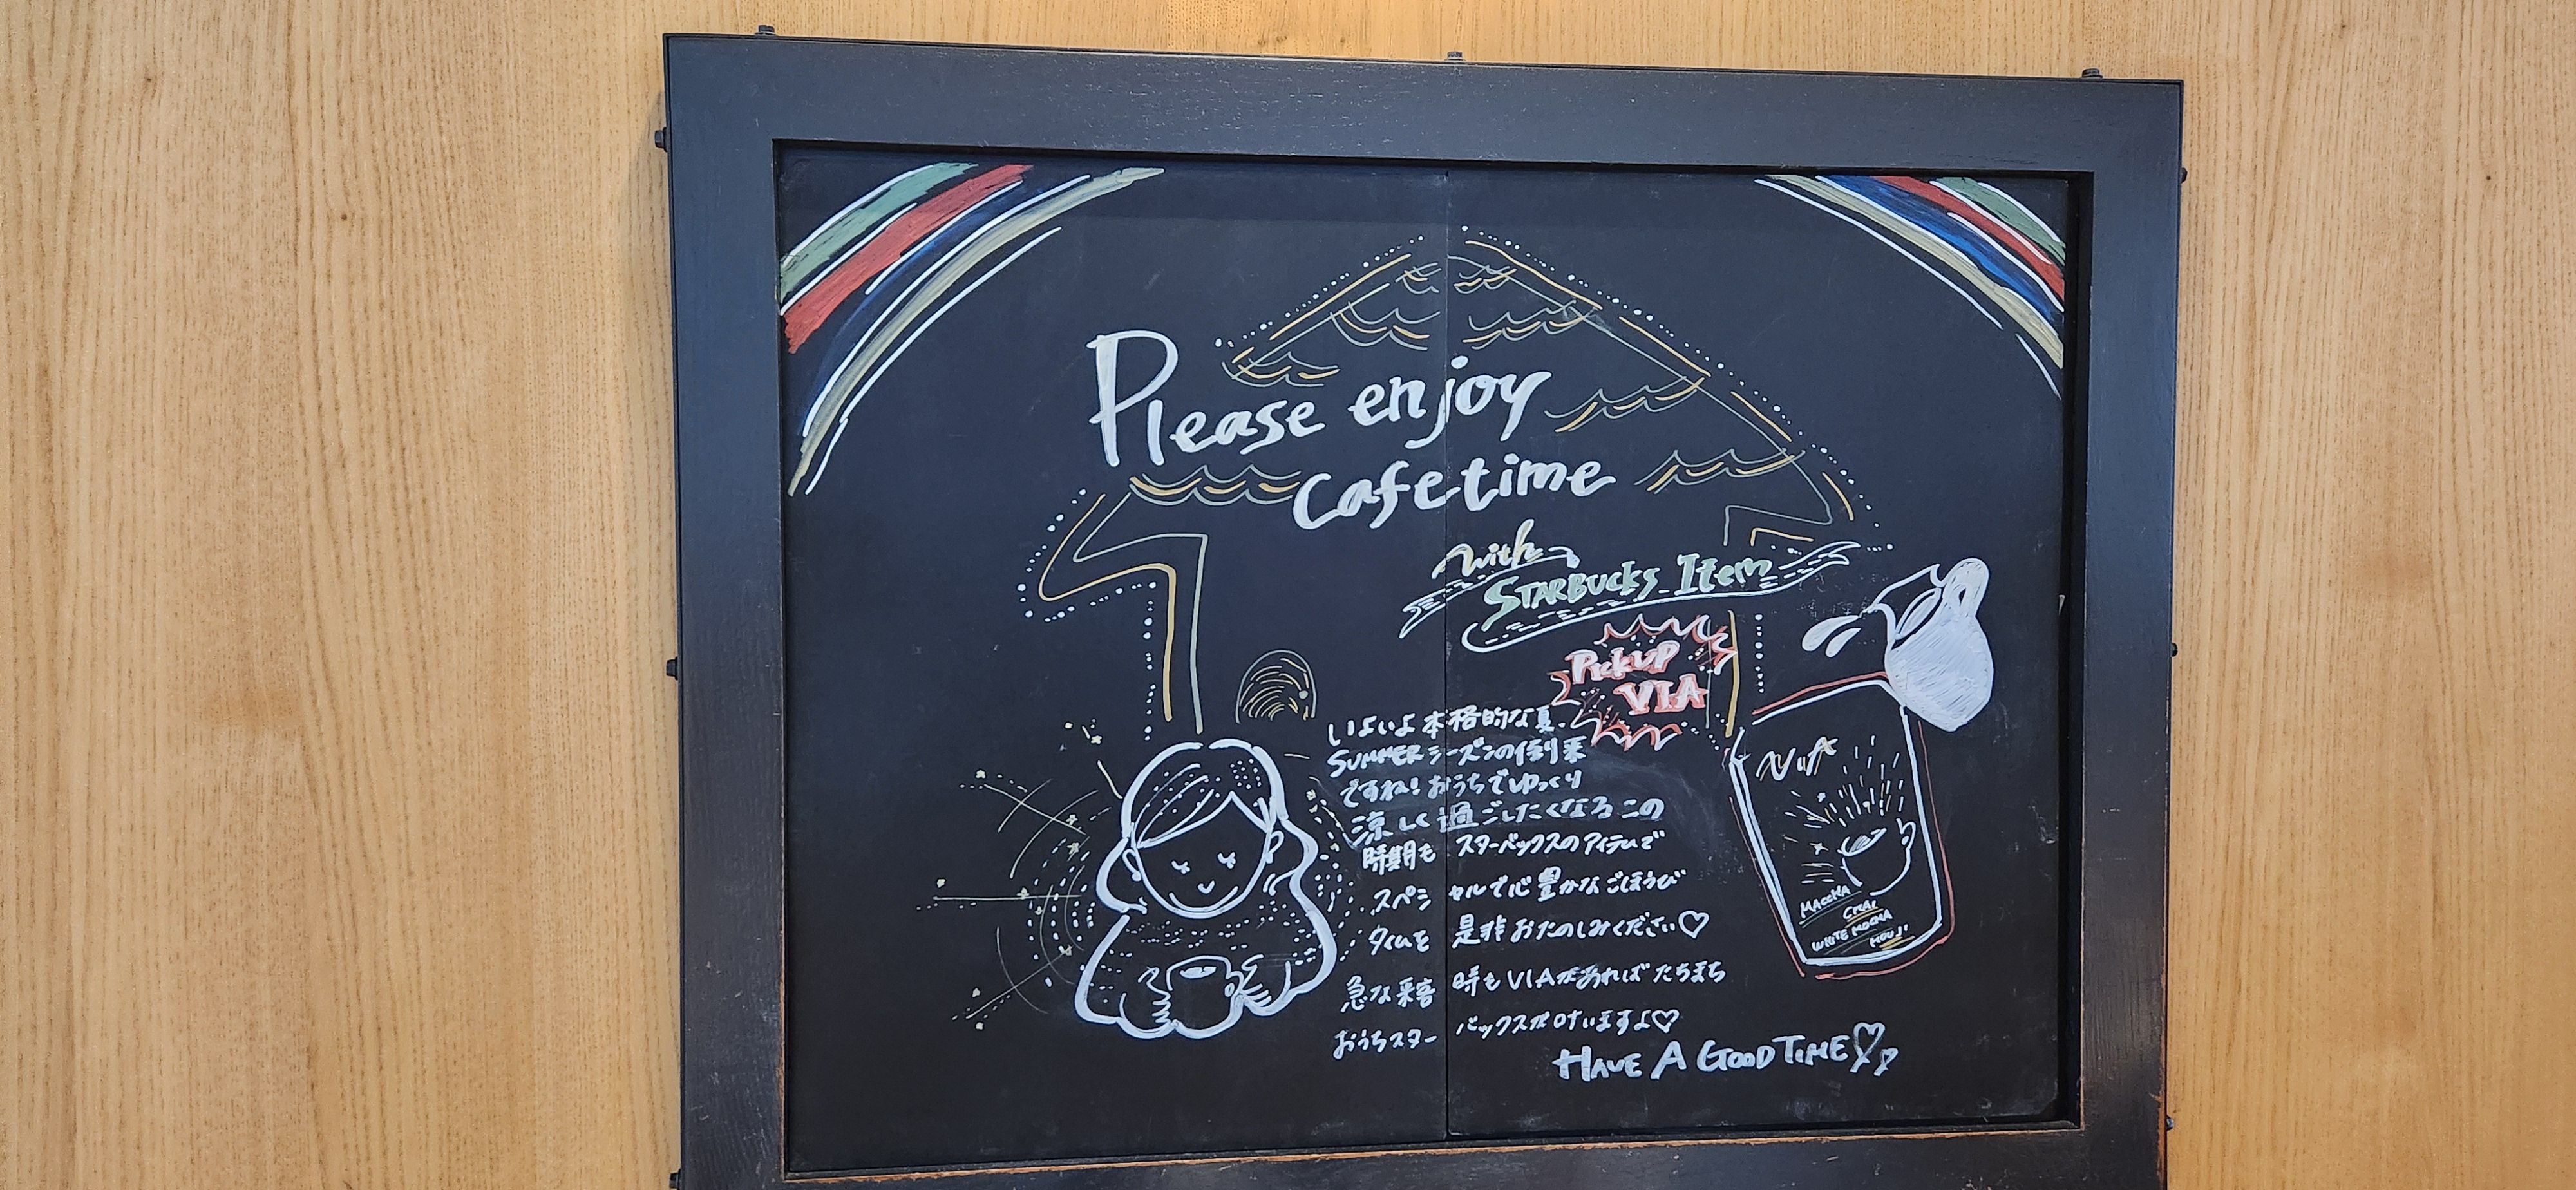 Please enjoy
Cafetime
with
STARBUCKS Item
Pickup
VIA
いよいよ本格的な夏。
SUMMERシーズンの到来
ですね！おうちでゆっくり
涼しく過ごしたくなるこの
時期も スターバックスのアイテムで
スペシャルで心豊かなごほうび
タイムを 是非おたのしみください♡
急な来客時もVIAがあればたちまち
おうちスターバックスが叶いますよ♡
HAVE A GOOD TIME♡♡
VIA
MACCHA
CHAI
WHITE MOCHA
HOUJI